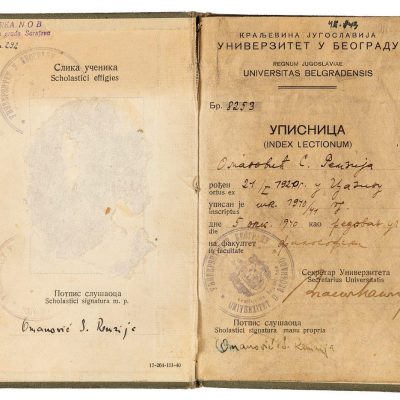 REANOB
grada Sarajeva
232
Слика ученика
Scholastici effigies
Потпис слушаоца
Scholastici signatura m. p.
Omanović S. Remzija
13-264-III-40
КРАЉЕВИНА ЈУГОСЛАВИЈА
УНИВЕРЗИТЕТ У БЕОГРАДУ
REGNUM JUGOSLAVIAE
UNIVERSITAS BELGRADENSIS
Бр. 8253
УПИСНИЦА
(INDEX LECTIONUM)
Омановић С. Ремзија
рођен 21/ 1920 г. у
ortus ex
уписан је шк. 1940/41 г.
inscriptus
дне 5 1940 као
die
на факултет
in facultate
Секретар Универзитета
Secretarius Universitatis
Потпис слушаоца
Scholastici signatura manu propria
Omanović S. Remzija